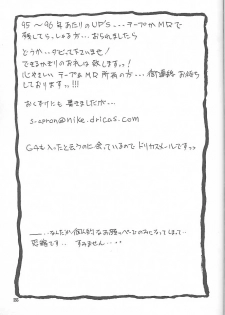 95〜96年あたりのUP'S... テープかMDで
残してらっしゃる方... おられましたら
どうか、ダビって下さいませ!
できるかぎりのお礼は致しますッ!
心やさしいテープ&MD所有の方... 御連絡お待ち
しておりますッ!!!
おくずけにも 書きましたが...
s-apron@nike.dricas.com
G4も入ったと云うのに 会っているのでドリカスメールですッッ
...なんだか 個人的な お願いページのみになってしまって...
恐縮です... すみません....